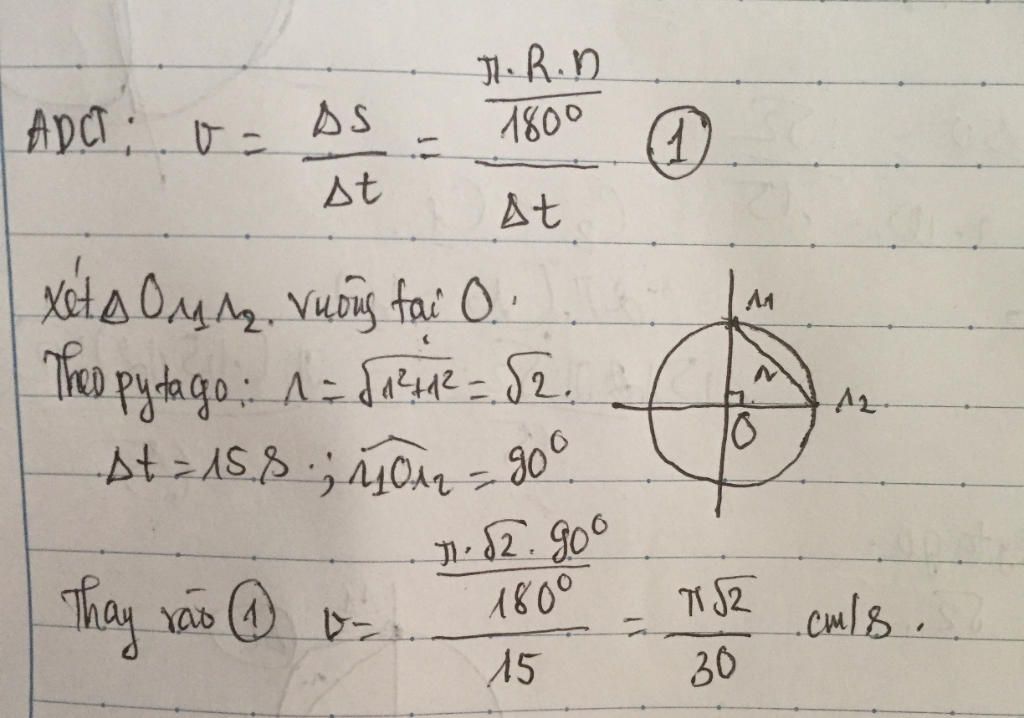 ADCT: v = Δs/Δt = (π.R.n/180⁰)/Δt ①
Xét Δ Or₁r₂. vuông tại O.
Theo pytago: r = √(1²+1²) = √2.
Δt = 15 s ; r₁Or₂ = 90⁰
Thay vào ① v = (π.√2.90⁰/180⁰)/15 = π√2/30 cm/s.
r₁
r
r₂
O